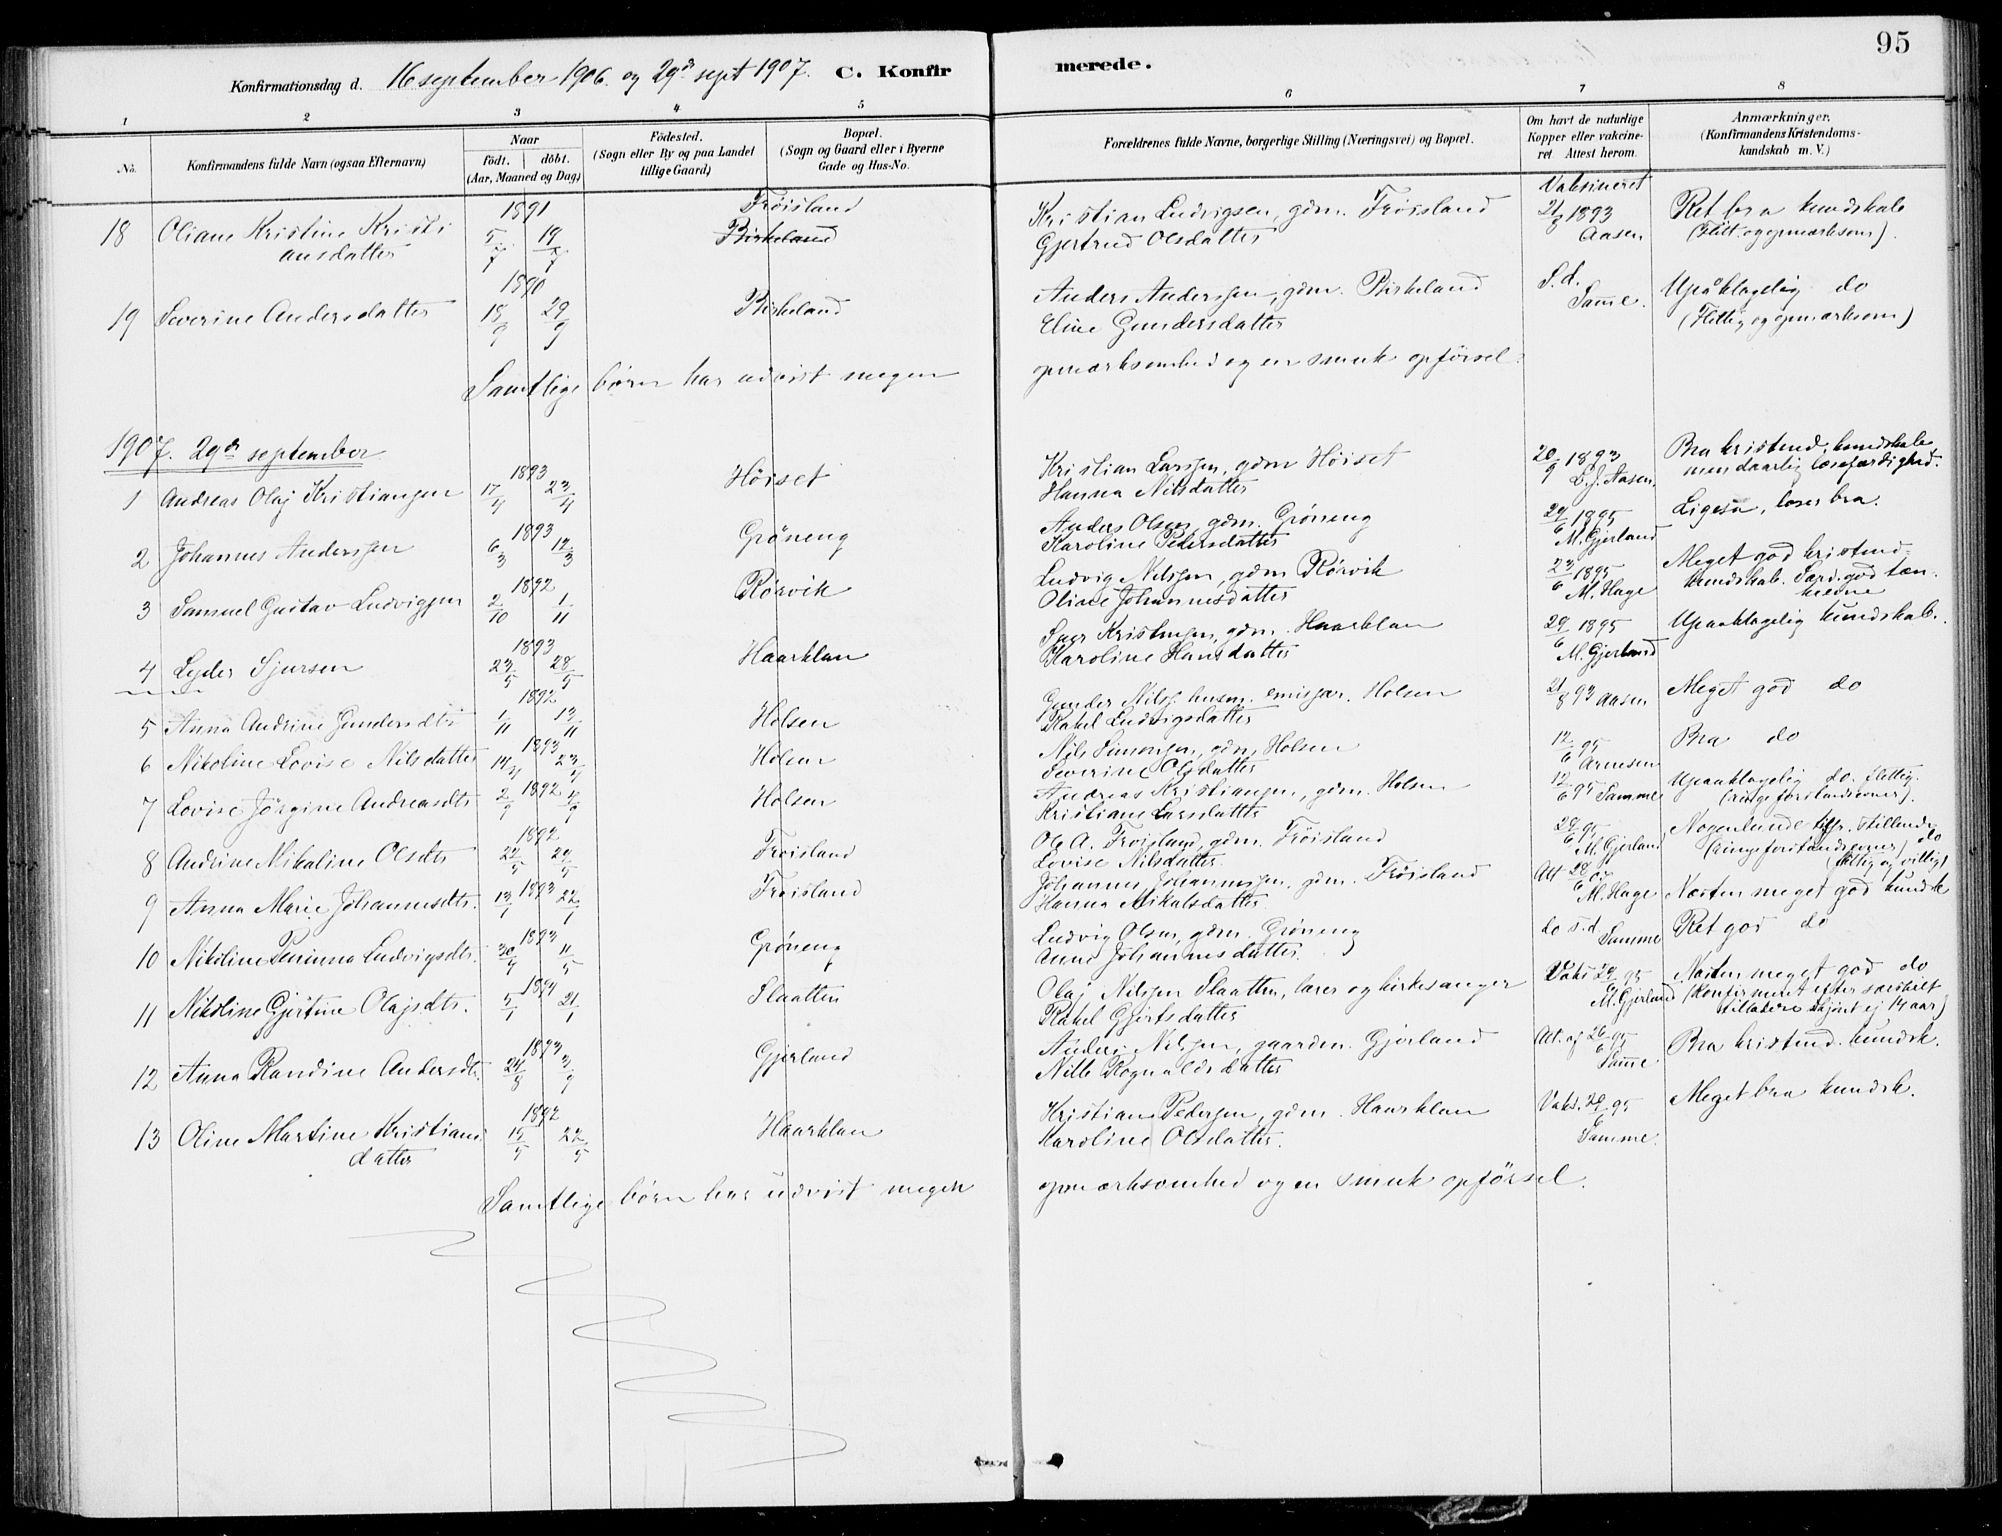 95
Konfirmationsdag d. 16 september 1906. og 29de sept 1907. C. Konfirmerede.
1 2 3 4 5 6 7 8
No. Konfirmandens fulde Navn (ogsaa Efternavn) Naar födt. döbt. (Aar, Maaned og Dag) Födested. (Sogn eller By og paa Landet tillige Gaard) Bopæl. (Sogn og Gaard eller i Byerne Gade og Hus-No. Forældrenes fulde Navne, borgerlige Stilling (Næringsvei) og Bopæl. Om havt de naturlige Kopper eller vakcineret Attest herom. Anmærkninger. (Konfirmandens Kristendomskundskab m. V.)
1891 Frøisland Vaksineret
18 Oliane Kristine Kristi 5/7 19/7 Birkeland Kristian Ludvigsen, gdm. Frøisland 21/8 1893 Ret bra kundskab
ansdatter Gjertrud Olsdatter Aasen (flitt. og opmærksom).
1890
19 Severine Andersdatter 18/9 29/9 Birkeland Anders Anderssen, gdm. Birkeland S. d. Upåklagelig do
Eline Gundersdatter Samme. (Flittig og opmærksom)
Samtlige børn har udvist megen opmærksomhed og en smuk opførsel.
1907. 29de september
1893
1 Andreas Olaj Kristiansen 17/4 23/4 Høiset Kristian Larssen, gdm Høiset 20/9 1893 Bra kristend. kundskab
Hanna Nilsdatter L. J. Aasen. men daarlig læsefærdighed.
1893
2 Johannes Anderssen 6/3 12/3 Grøneng Anders Olsen, gdm. Grøneng 29/6 1895 Ligeså, læser bra.
Karoline Pedersdatter M. Gjerland
1892
3 Samuel Gustav Ludvigsen 2/10 1/11 Rørvik Ludvig Nilssen, gdm Rørvik 23/6 1895 Meget god kristend.
Oliane Johannesdatter M. Hage kundskab.
1893
4 Lyder Sjursen 23/5 28/5 Haarklau Kristensen, gdm. Haarklau 29/6 1895 Upaaklagelig kundskab.
Karoline Hansdatter M. Gjerland
1892
5 Anna Andrine Gundersdtr 1/11 13/11 Holsen Gunder Nilss. husm. emissær. Holsen 21/8 93 Aasen Meget god do
Rakel Ludvigsdatter
1893
6 Nikoline Lovise Nilsdatter 14/4 23/4 Holsen Nils Simonsen, gdm, Holsen 12/6 95 Bra do
Severine Olsdatter Arnesen
1892
7 Lovise Jørgine Andreasdtr 2/9 Holsen Andreas Kristiansen, gdm. Holsen 12/6 95 Samme Upaaklagelig do. flittig.
Kristiane Larsdatter (ringe forstandsevner).
1892
8 Andrine Mikaline Olsdtr 22/5 29/5 Frøisland Ole A. Frøisland, gdm. Frøisland 29/6 95 Nogenlunde tilfr. stillende
Lovise Nilsdatter M. Gjerland (ringe forstandsevner) do (flittig og villig)
1893
9 Anna Marie Johannesdtr. 13/1 22/1 Frøisland Johannes Johannessen. gdm. Frøisland Att
Hanna Mikalsdatter. M. Hage Næsten meget god kundsk
1893
10 Nikoline Perinna Ludvigsdtr. 30/4 11/5 Grøneng Ludvig Olsen, gdm. Grøneng do s. d. Ret god do
Anne Johannesdatter. Samme
1894
11 Nikoline Gjertine Olajsdtr. 5/1 21/1 Slaatten Olaj Nilssen Slaatten, lærer og kirkesanger Vaks 29/6 95 Næsten meget god do
Rakel Gjertsdatter M. Gjerland (Konfirmeret efter særskilt tilladelse skjønt ej 14 aar)
1893
12 Anna Randine Andersdtr. 24/8 3/9 Gjerland Anders Nilssen, gaardm. Gjerland Att. af 26/6 95 Bra kristend. kundsk.
Nille Rognaldsdatter Samme
1892
13 Oline Martine Kristians 15/5 22/5 Haarklau Kristian Pedersen, gdm. Haarklau Vaks. 29/6 95 Meget bra kundsk.
datter Karoline Olsdatter. Samme.
Samtlige børn har udvist megen opmærksomhed og en smuk opførsel.